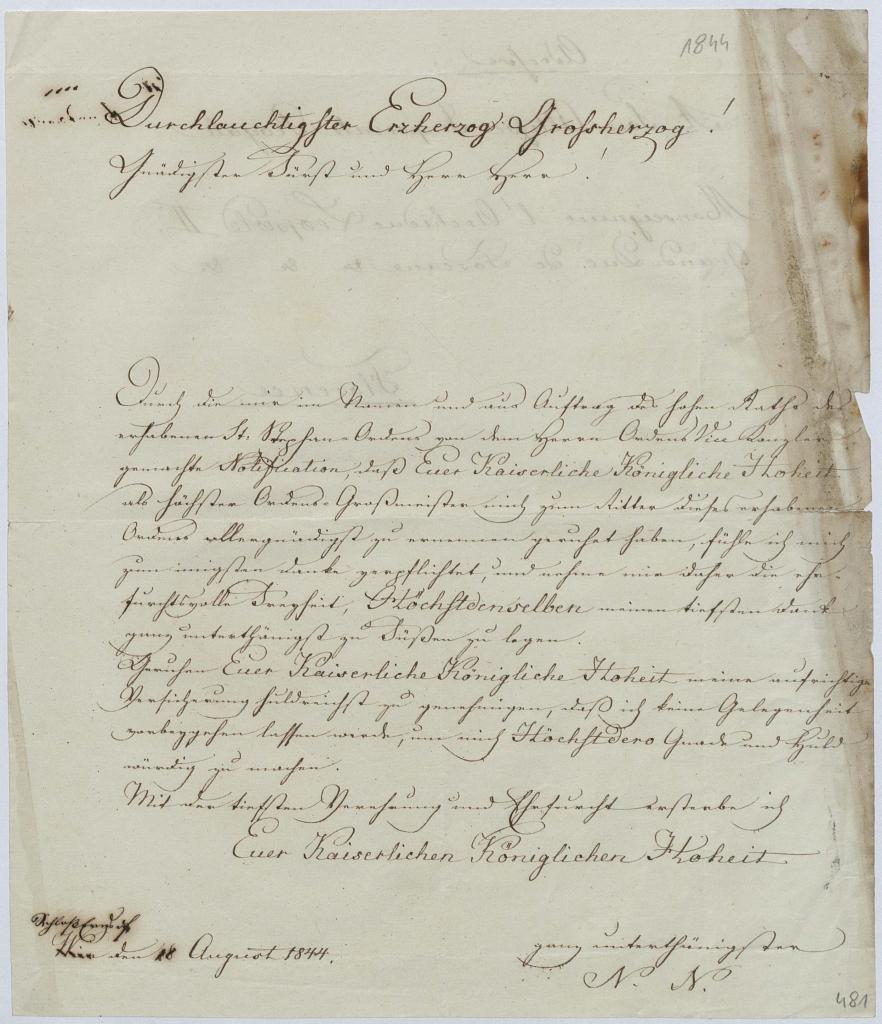 1844
Durchlauchtigster Erzherzog Grossherzog!
Gnädigster Fürst und Herr Herr!
Durch die mir im Namen und aus Auftrag des hohen Raths des
erhabenen St: Stephan-Ordens von dem Herrn Ordens Vice Kanzler
gemachte Notification, daß Euer Kaiserliche Königliche Hoheit
als höchster Ordens-Großmeister mich zum Ritter dieses erhabenen
Ordens allergnädigst zu ernennen geruhet haben, fühle ich mich
zum innigsten Danke verpflichtet, und nehme mir daher die ehr-
furchtsvolle Freyheit, Höchstdenselben meinen tiefsten Dank
ganz unterthänigst zu Füßen zu legen.
Geruhen Euer Kaiserliche Königliche Hoheit meine aufrichtige
Versicherung huldreichst zu genehmigen, daß ich keine Gelegenheit
vorbeygehen lassen werde, um mich Höchstdero Gnade und Huld
würdig zu machen.
Mit der tiefsten Verehrung und Ehrfurcht ersterbe ich
Euer Kaiserlichen Königlichen Hoheit
Schloß
den 18 August 1844.
ganz unterthänigster
N. N.
481